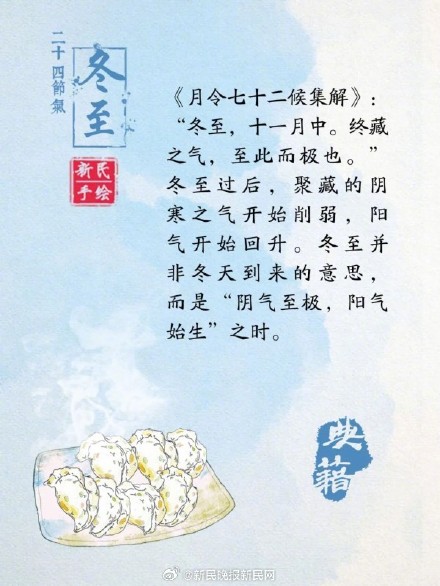 二十四節氣
冬至
新民
手绘
《月令七十二候集解》:
“冬至，十一月中。终藏
之气，至此而极也。”
冬至过后，聚藏的阴
寒之气开始削弱，阳
气开始回升。冬至并
非冬天到来的意思，
而是“阴气至极，阳气
始生”之时。
典藉
@新民晚报新民网